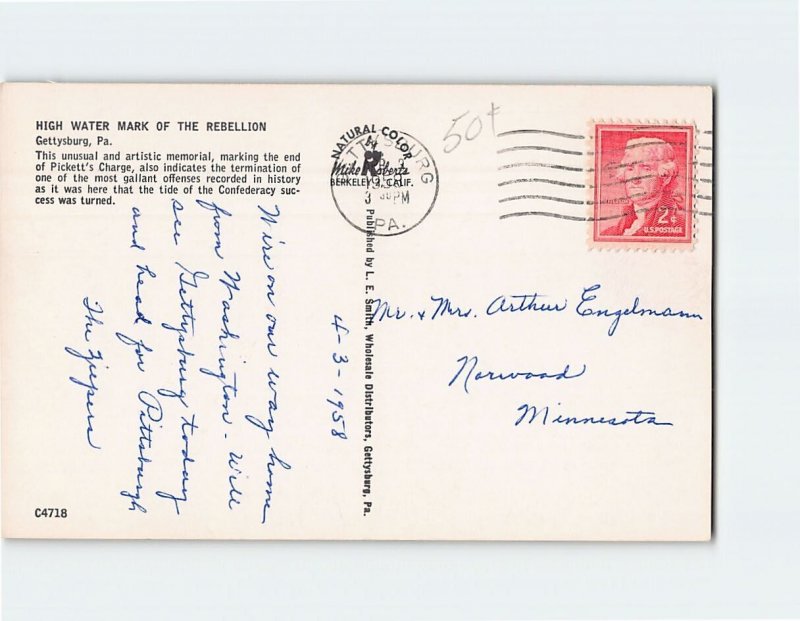 HIGH WATER MARK OF THE REBELLION
Gettysburg, Pa.
This unusual and artistic memorial, marking the end
of Pickett's Charge, also indicates the termination of
one of the most gallant offenses recorded in history
as it was here that the tide of the Confederacy suc-
cess was turned.
We're on our way home
from Washington - Will
see Gettysburg today
and head for Pittsburgh
The
4-3-1958
C4718
NATURAL COLOR
Mike Roberts
BERKELEY 2, CALIF.
Published by L. E. Smith, Wholesale Distributors, Gettysburg, Pa.
PM
PA.
50¢
2¢
U.S. POSTAGE
Mr. & Mrs. Arthur Engelmann
Norwood
Minnesota